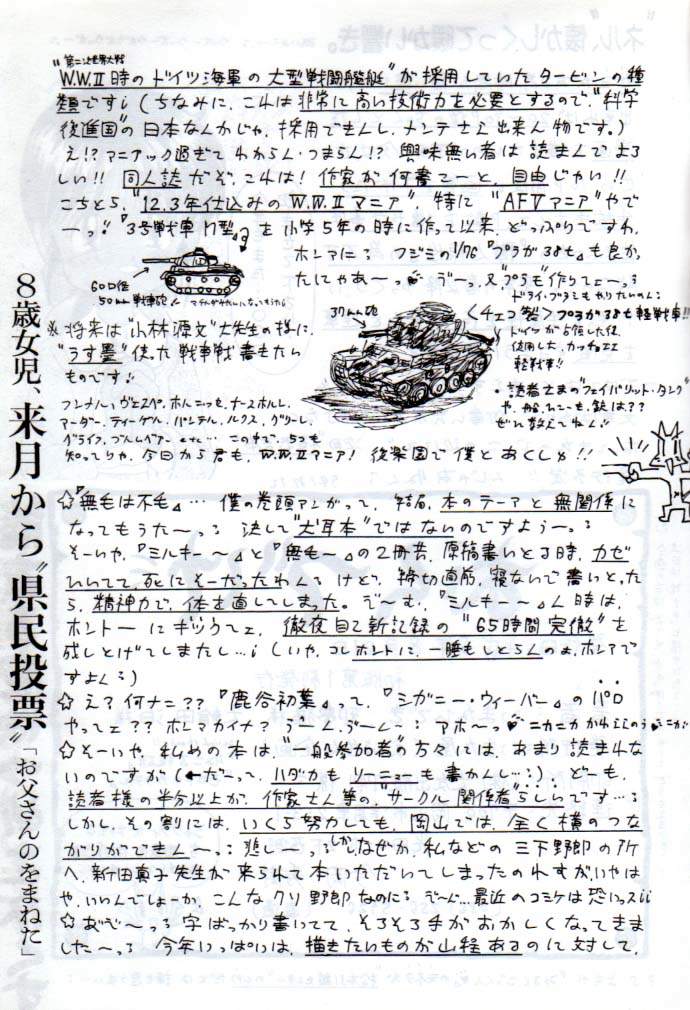 第二次世界大戦
"W.W.Ⅱ時のドイツ海軍の大型戦闘艦艇"が採用していたタービンの種
類です¡(ちなみに、これは非常に高い技術力を必要とするので、"科学
後進国"の日本なんかじゃ、採用できんし、メンテさえ出来ん物です。)
え!?マニアック過ぎてわからん・つまらん!?興味無い者は読まんでよろ
しい!!同人誌だぞ、これは!作家が何書てーと、自由じゃい!!
こちとら、"12,3年仕込みのW.W.Ⅱマニア"、特に"AFVマニア"やで
ーっ!『3号戦車N型』を小学5年の時に作って以来、どっぷりですわ、
ホンマに! フジミの1/76『プラガ38t』も良か
たにゃあ〜っ
60口径
50mm戦車砲
37mm砲
ドライ・ブラシもやりたいのん
〈チェコ製〉プラガ38t軽戦車!!
ドイツが占領した後、
使用した、カッチョエエ
軽戦車!!
※将来は"小林源文"大先生の様に、
"うす墨"使った戦車戦書もたい
ものです!
・読者さまの"フェイバリット・タンク"
や、船、ひこーき、銃は??
ぜひ教えてねん!
フンメル、ヴェスペ、ホルニッセ、ナースホルン、
マーダー、ティーゲル、パンテル、ルクス、グリーレ、
知ってりゃ、今日から君も、W.W.Ⅱマニア! 後楽園で僕とあくしゅ!!
☆『無毛は不毛』…僕の巻頭マンガって、結局、本のテーマと無関係に
なってもうた〜っ! 決して"犬耳本"ではないのですよぅーっ!
そーいや、『ミルキー〜』と『無毛〜』の2冊共、原稿書いとる時、カゼ
ひいてて、死にそーだったわんてけど、締切直前、寝ないで書いとった
ら、精神力で、体を直してしまった。ぞ〜む、『ミルキー〜』ん時は、
ホントーにギックてェ、徹夜自己新記録の"65時間完徹"を
成しとげてしまたし…¡(いや、コレホントに、一睡もしとらんのよ、ホンマで
すよん!)
☆え?何ナニ??『鹿谷初葉』って、『シガニー・ウィーバー』のパロ
やってェ??ホンマカイナ?うーん、ぶーん… アホ〜っ
☆そーいや、私めの本は、"一般参加者"の方々には、あまり読まれな
いのですが(←だーって、ハダカもソーニューも書かんし…!)、どーも、
読者様の半分以上が、作家さん等の、"サークル関係者"らしいです…!
しかし、その割には、いくら努力しても、岡山では、全く横のつな
がりができん〜っ! 悲しーっ! しかし、なぜか、私などの三下野郎の所
へ、新田真子先生が来られて本いただいてしまったのれすが、いやは
や、いいんでしょーか、こんなクソ野郎なのに! で〜ん…最近のコミケは恐いっス¡¡
☆あぞ〜っ! 字ばっかり書いてて、そろそろ手がおかしくなってきま
した〜っ! 今年いっぱいは、描きたいものが山程あるのに対して、
8歳女児、来月から"県民投票"
「お父さんのをまねた」